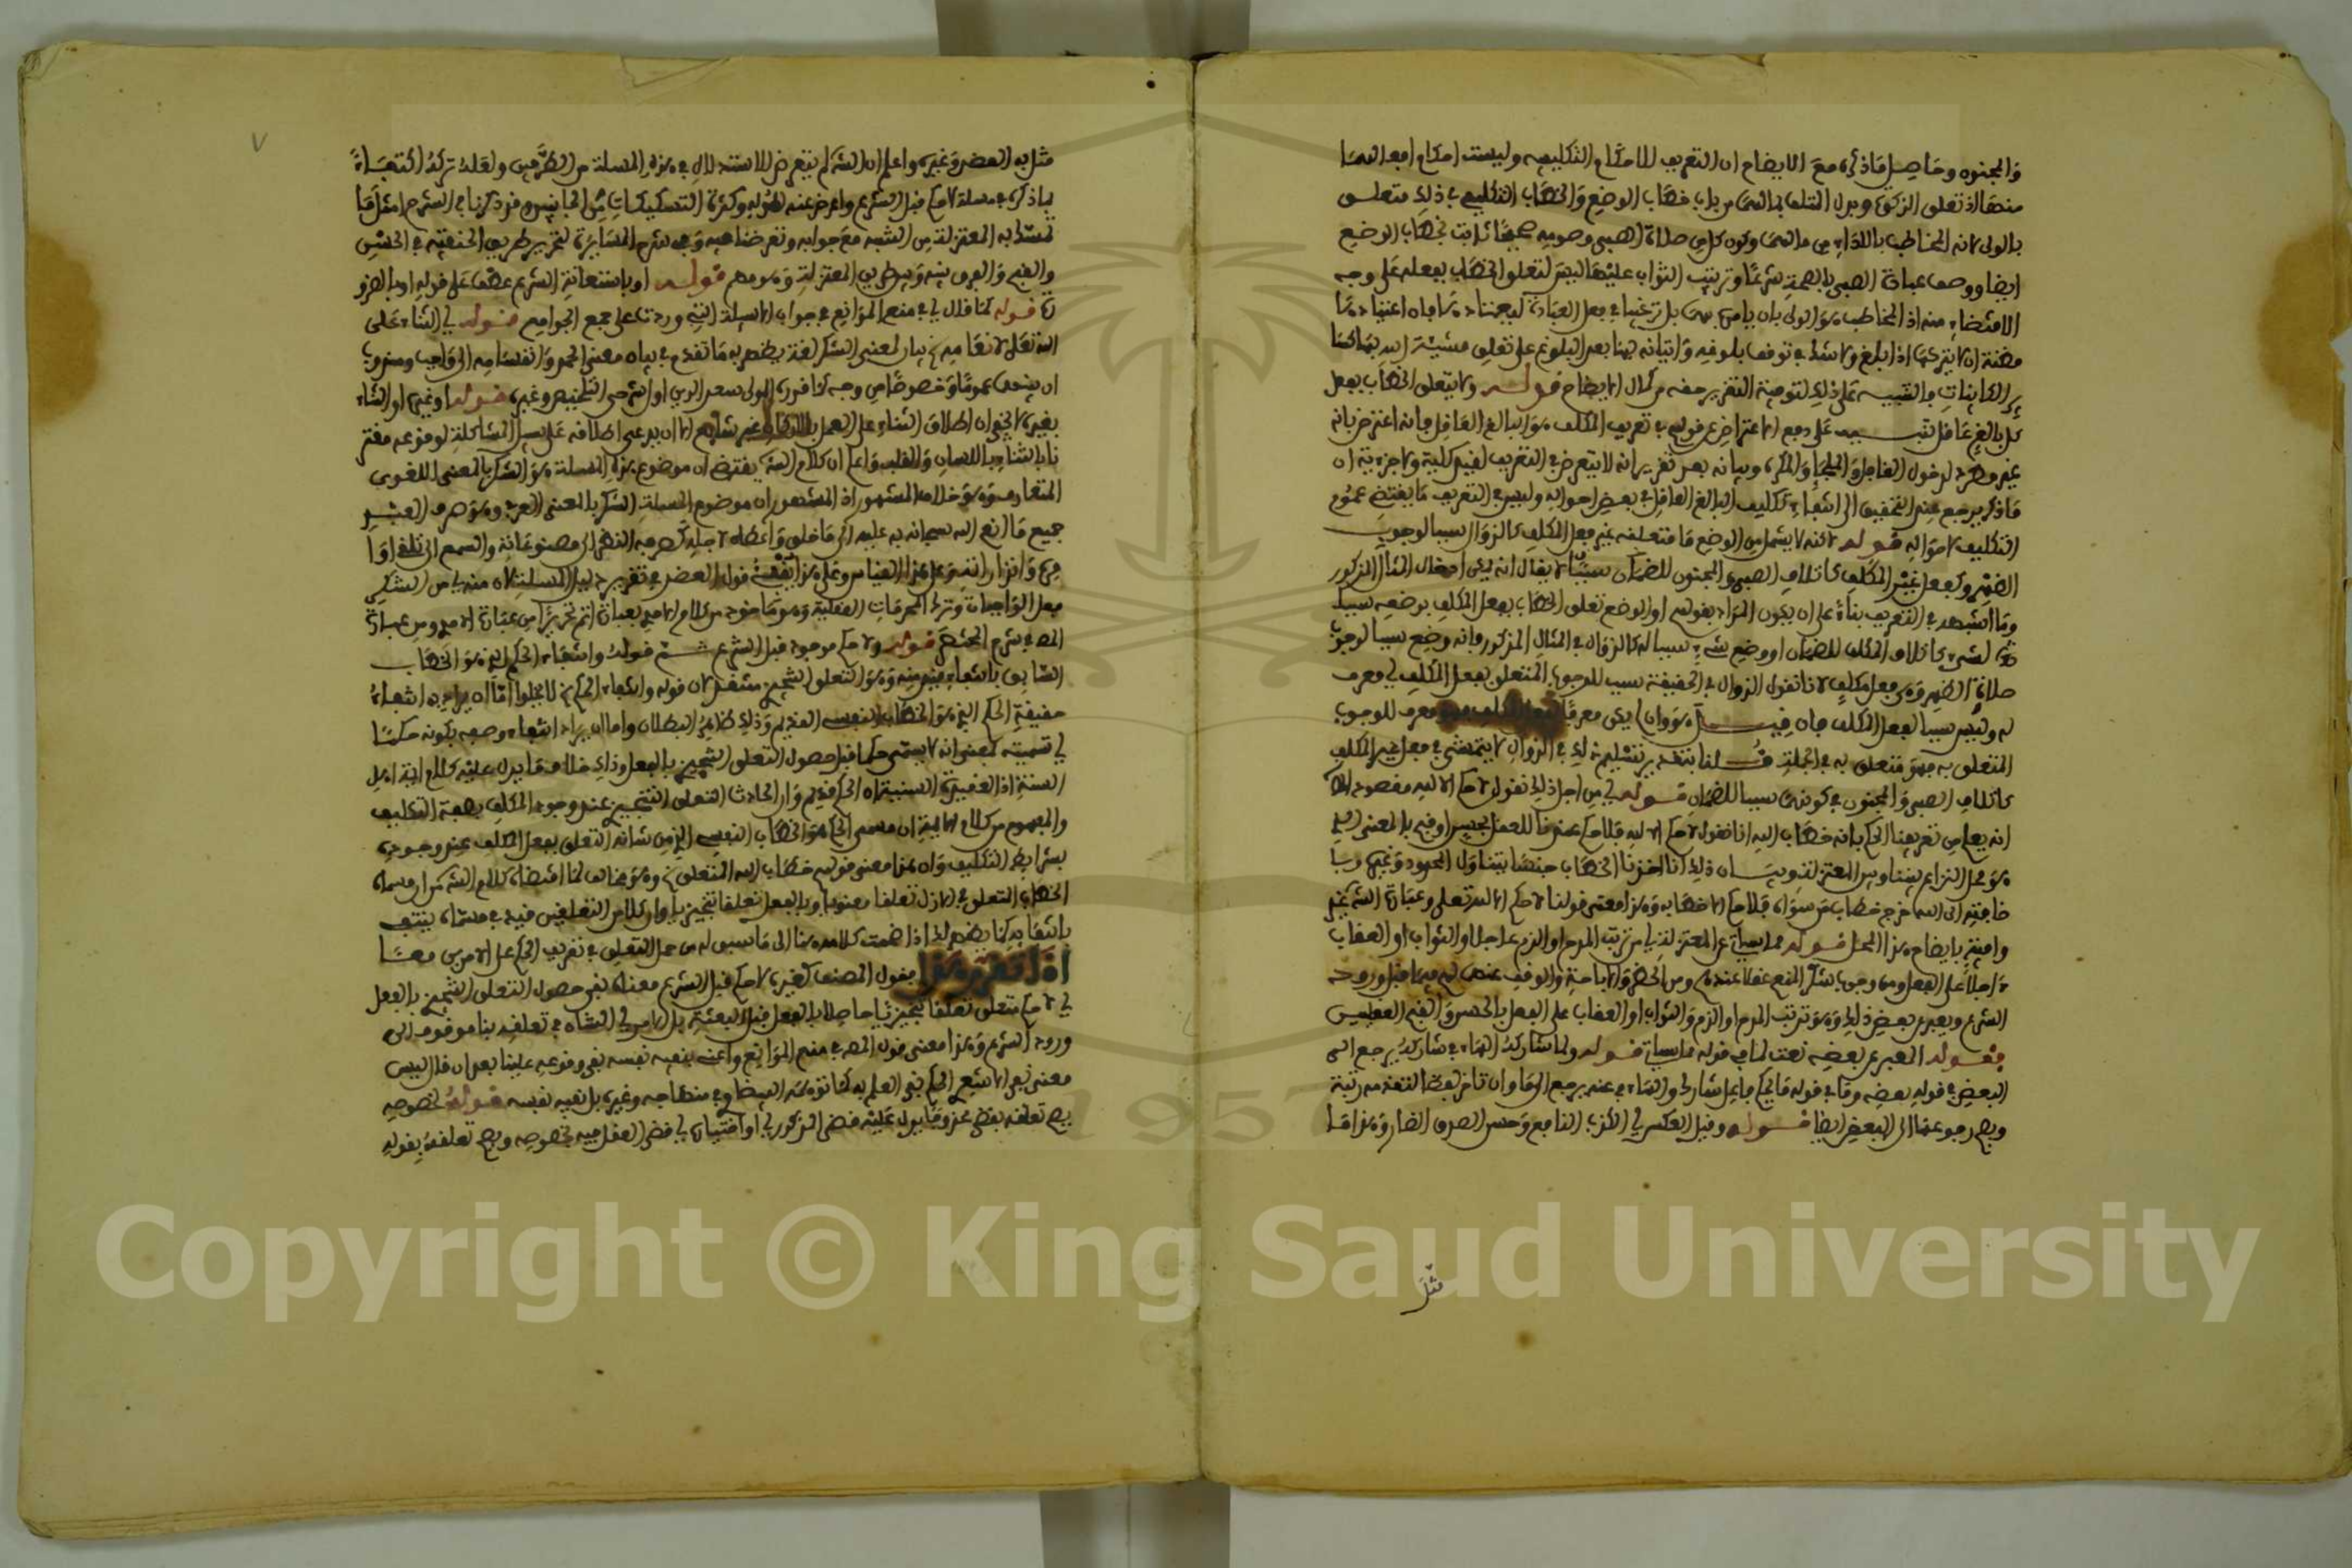 والمجنون وحاصل ما ذكره مع الايضاح ان التعريف للاحكام التكليفية وليست احكام افعالهما
منها اذ تعلق الزكوة وبدل المتلف بمالهما من باب خطاب الوضع والخطاب التكليفي في ذلك متعلق
بالولي لانه المخاطب بالاداء من مالهما وكون كل من صلاة الصبي وصومه صحيحا ثابت بخطاب الوضع
ايضا ووصف عبادة الصبي بالصحة شرعا وترتيب الثواب عليها ليس لتعلق الخطاب بفعله على وجه
الاقتضاء منه اذ المخاطب هو الولي بان يامره بها بل ترغيبا في فعل العبادة ليعتادها فان اعتيادها
مظنة ان لا يتركها اذا بلغ ولا شك في توقف بلوغه واتيانه بها بعد البلوغ على تعلق مشيئة الله بهما كسا
ير الكاينات والتنبيه على ذلك لتوفية التقرير حقه من كمال الايضاح قوله ولا يتعلق الخطاب بفعل
كل بالغ عاقل تنبيه على دفع الاعتراض عن قولهم في تعريف المكلف هو البالغ العاقل فانه اعترض بانه
غير مطرد لدخول الغافل والملجإ والمكره وبيانه بعد تقرير انه لا يتعرض في التعريف لقيد كلية ولا جزءية ان
ما ذكر يرجع عند التحقيق الى انتفاء تكليف البالغ العاقل في بعض احواله وليس في التعريف ما يقتضي عموم
التكليف لاحواله قوله لانه لا يشمل من الوضع ما متعلقه غير فعل المكلف كالزوال سببا لوجوب
الظهر وكفعل غير المكلف كاتلاف الصبي والمجنون للضمان سببا لا يقال انه يمكن ادخال المثال المذكور
وما اشبهه في التعريف بناء على ان يكون المراد بقولهم او الوضع تعلق الخطاب بفعل المكلف بوضعه سببا
لشيء كاتلاف المكلف للضمان او وضع شيء سببا له كالزوال في المثال المذكور فانه وضع سببا لوجوب
صلاة الظهر وهي فعل مكلف لانا نقول الزوال في الحقيقة سبب للوجوب المتعلق بفعل المكلف اي معرف
له وليس سببا لفعل المكلف فان قيل هو وان لم يكن معرفا لفعل المكلف فهو معرف للوجوب
المتعلق به فهو متعلق به في الجملة قلنا بتقدير تسليم ذلك في الزوال لا يتمشى في فعل غير المكلف
كاتلاف الصبي والمجنون في كونه سببا للضمان قوله اي من اجل ذلك نقول لا حكم الا لله مقصوده
انه يعلم من تعريفنا الحكم بانه خطاب الله انا نقول لا حكم الا لله فلا حكم عندنا للعقل بحسن او قبح بالمعنى الذي
هو محل النزاع بيننا وبين المعتزلة وبيان ذلك انا اخذنا الخطاب جنسا يتناول المحدود وغيره وبا
ضافته الى الله خرج خطاب من سواه فلا حكم الا خطابه وهذا معنى قولنا لا حكم الا لله تعالى وعبارة الشرح غير
وافية بايضاح هذا المحل قوله مما سياتي عن المعتزلة اي من ترتب المدح او الذم عاجلا والثواب او العقاب
ءاجلا على الفعل ومن وجوب شكر المنعم عقلا عندهم ومن الحظر والاباحة والوقف عندهم فيما قبل ورود
الشرع ويعبر عن بعض ذلك وهو ترتب المدح او الذم والثواب او العقاب على الفعل بالحسن والقبح العقليين
فقوله المعبر عن بعضه نعت لما في قوله مما سياتي قوله ولما شاركه الهاء في شاركه يرجع الى
البعض في قوله بعضه وما في قوله ما يحكم فاعل شارك والهاء في عنه يرجع الى ما وان تاخر لفظا لتقدمه رتبة
ويصح رجوعها الى البعض ايضا قوله وقيل العكس اي الكذب النافع وحسن الصدق الضار وهذا ما
مثل
٧
مثل به العضد وغيره واعلم ان الشارح لم يتعرض للاستدلال في هذه المسئلة من الطرفين ولعله تركه اكتفاء
بما ذكره في مسئلة لا حكم قبل الشرع واعرض عنه لطوله وكثرة التشكيكات من الجانبين وقد ذكرنا في الشرح امثل ما
تمسك به المعتزلة من الشبه مع جوابه وتعرضنا فيه وفي شرح المسايرة لتحرير طريق الحنفية في الحسن
والقبح والفرق بينه وبين طريق المعتزلة وهو مهم قوله او باستعانة الشرع عطف على قوله او بالضرو
رة قوله كما قال اي في منع الموانع في جواب الاسئلة التي وردت على جمع الجوامع قوله اي الثناء على
الله تعالى لانعامه بيان لمعنى الشكر لغة يظهر به ما تقدم في بيان معنى الحمد وانقسامه الى واجب ومندوب
ان بينهما عموما وخصوصا من وجه كما قرره المولى سعد الدين اول شرحي التلخيص وغيره قوله او غيره او الثناء
بغيره لا يخفى ان اطلاق الثناء على العمل بالاركان غير شايع الا ان يدعى اطلاقه على سبيل المشاكلة لوقوعه مقتر
نا بالثناء باللسان والقلب واعلم ان كلام الشارح يقتضي ان موضوع هذه المسئلة هو الشكر بالمعنى اللغوي
المتعارف وهو خلاف المشهور اذ المشهور ان موضوع المسئلة الشكر بالمعنى العرفي وهو صرف العبد
جميع ما انعم الله سبحانه به عليه الى ما خلق واعطاه لاجله كصرفه النظر الى مصنوعاته والسمع الى تلقي اوا
مره وانذاراته وعلى هذا القياس وعلى هذا ينطبق قول العضد في تقرير دليل المسئلة لان منه اي من الشكر
فعل الواجبات وترك المحرمات العقلية وهو ماخوذ من كلام الامدي بعبارة اتم تحريرا من عبارة الامدي ومن عبارة
المصنف في شرح المختصر قوله ولا حكم موجود قبل الشرع ثم قوله وانتفاء الحكم الذي هو الخطاب
السابق بانتفاء قيد منه وهو التعلق التنجيزي منتقد لان قوله وانتفاء الحكم لا يخلوا اما ان يراد به انتفاء
حقيقة الحكم الذي هو الخطاب النفسي القديم وذلك ظاهر البطلان واما ان يراد انتفاء وصفه بكونه حكما
اي تسميته بمعنى انه لا يسمى حكما قبل حصول التعلق التنجيزي بالفعل وذلك خلاف ما يدل عليه كلام ايمة اهل
السنة اذ العقيدة السنية ان الحكم قديم وان الحادث التعلق التنجيزي عند وجود المكلف بصفة التكليف
والمفهوم من كلام الايمة ان مسمى الحكم هو الخطاب النفسي الذي من شانه التعلق بفعل المكلف عند وجوده
بشرايط التكليف وان هذا معنى قولهم خطاب الله المتعلق وهو مخالف لما اقتضاه كلام الشارح من ان مسماه
الخطاب المتعلق في الازل تعلقا معنويا وبالفعل تعلقا تنجيزيا وان كلا من التعلقين قيد في مسماه ينتفي
بانتفائه كما يظهر لك اذا ضممت كلامه هنا الى ما سبق له من حمل التعلق في تعريف الحكم على الامرين معا
اذا تقرر هذا فقول المصنف كغيره لا حكم قبل الشرع معناه نفي حصول التعلق التنجيزي بالفعل
اي لا حكم متعلق تعلقا تنجيزيا حاصلا بالفعل قبل البعثة بل الامر اي الشان في تعلقه بنا موقوف الى
ورود الشرع وهذا معنى قول المصنف في منع الموانع واعني بنفيه نفي وقوعه علينا بعد ان قال ليس
معنى نفي الاشعري الحكم نفي العلم به كما توهمه البيضاوي في منهاجه وغيره بل نفيه نفسه قوله لخصوصه
يصح تعلقه بقضى عند وما يدل عليه قضى المذكور اي او اختيارى اي قضى العقل فيه لخصوصه ويصح تعلقه بقوله
Copyright © King Saud University
1957